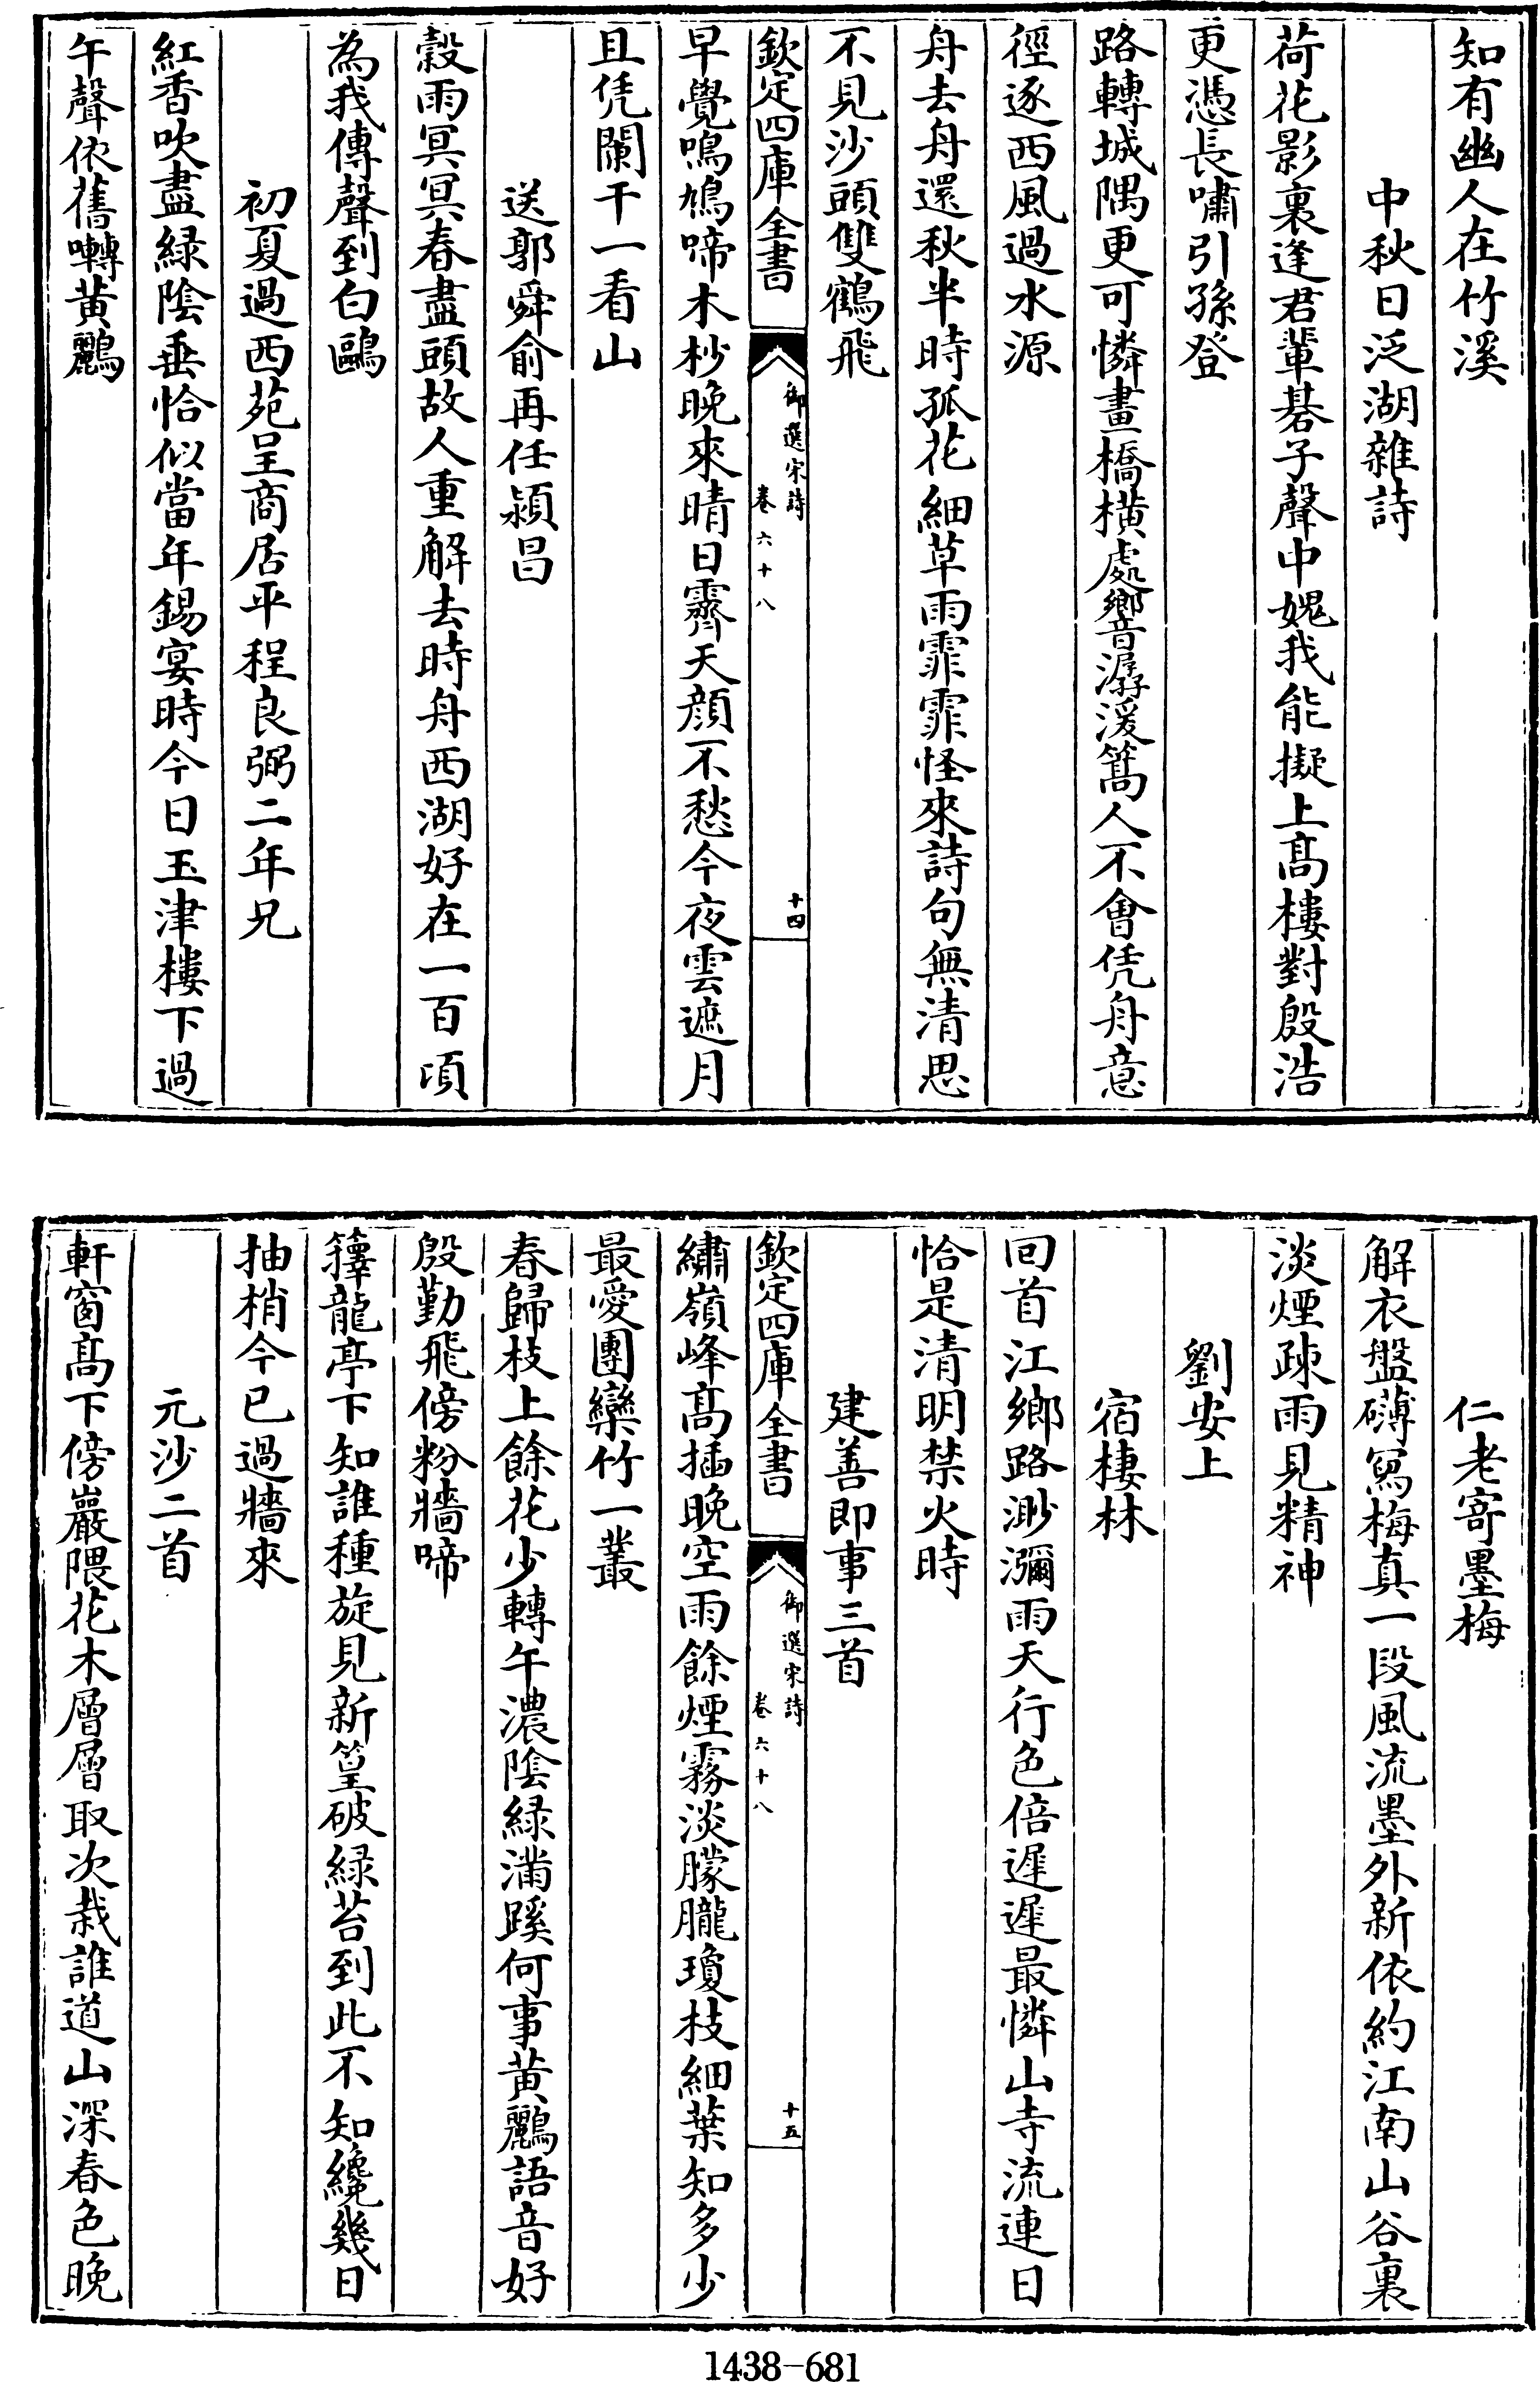 知有幽人在竹溪
中秋日泛湖雜詩
荷花影裏逢君輩碁子聲中媿我能擬上髙樓對殷浩
更憑長嘯引孫登
路轉城隅更可憐畫橋橫處響潺湲篙人不會凭舟意
徑逐西風過水源
舟去舟還秋半時孤花細草雨霏霏怪來詩句無清思
不見沙頭雙鶴飛
欽定四庫全書
御選宋詩
卷六十八
十四
早覺鳴鳩啼木杪晚來晴日霽天顔不愁今夜雲遮月
且凭闌干一看山
送郭舜俞再任潁昌
穀雨冥冥春盡頭故人重解去時舟西湖好在一百頃
為我傳聲到白鷗
初夏過西苑呈商居平程良弼二年兄
紅香吹盡緑陰垂恰似當年錫宴時今日玉津樓下過
午聲依舊囀黄鸝
仁老寄墨梅
解衣盤礴冩梅真一段風流墨外新依約江南山谷裏
淡煙疎雨見精神
劉安上
宿棲林
回首江鄉路渺瀰雨天行色倍遲遲最憐山寺流連日
恰是清明禁火時
建善即事三首
欽定四庫全書
御選宋詩
卷六十八
十五
繡嶺峰髙插晚空雨餘煙霧淡朦朧瓊枝細葉知多少
最愛團欒竹一叢
春歸枝上餘花少轉午濃陰緑滿蹊何事黄鸝語音好
殷勤飛傍粉牆啼
籜龍亭下知誰種旋見新篁破緑苔到此不知纔幾日
抽梢今已過牆來
元沙二首
軒窗髙下傍巖隈花木層層取次栽誰道山深春色晚
1438-681